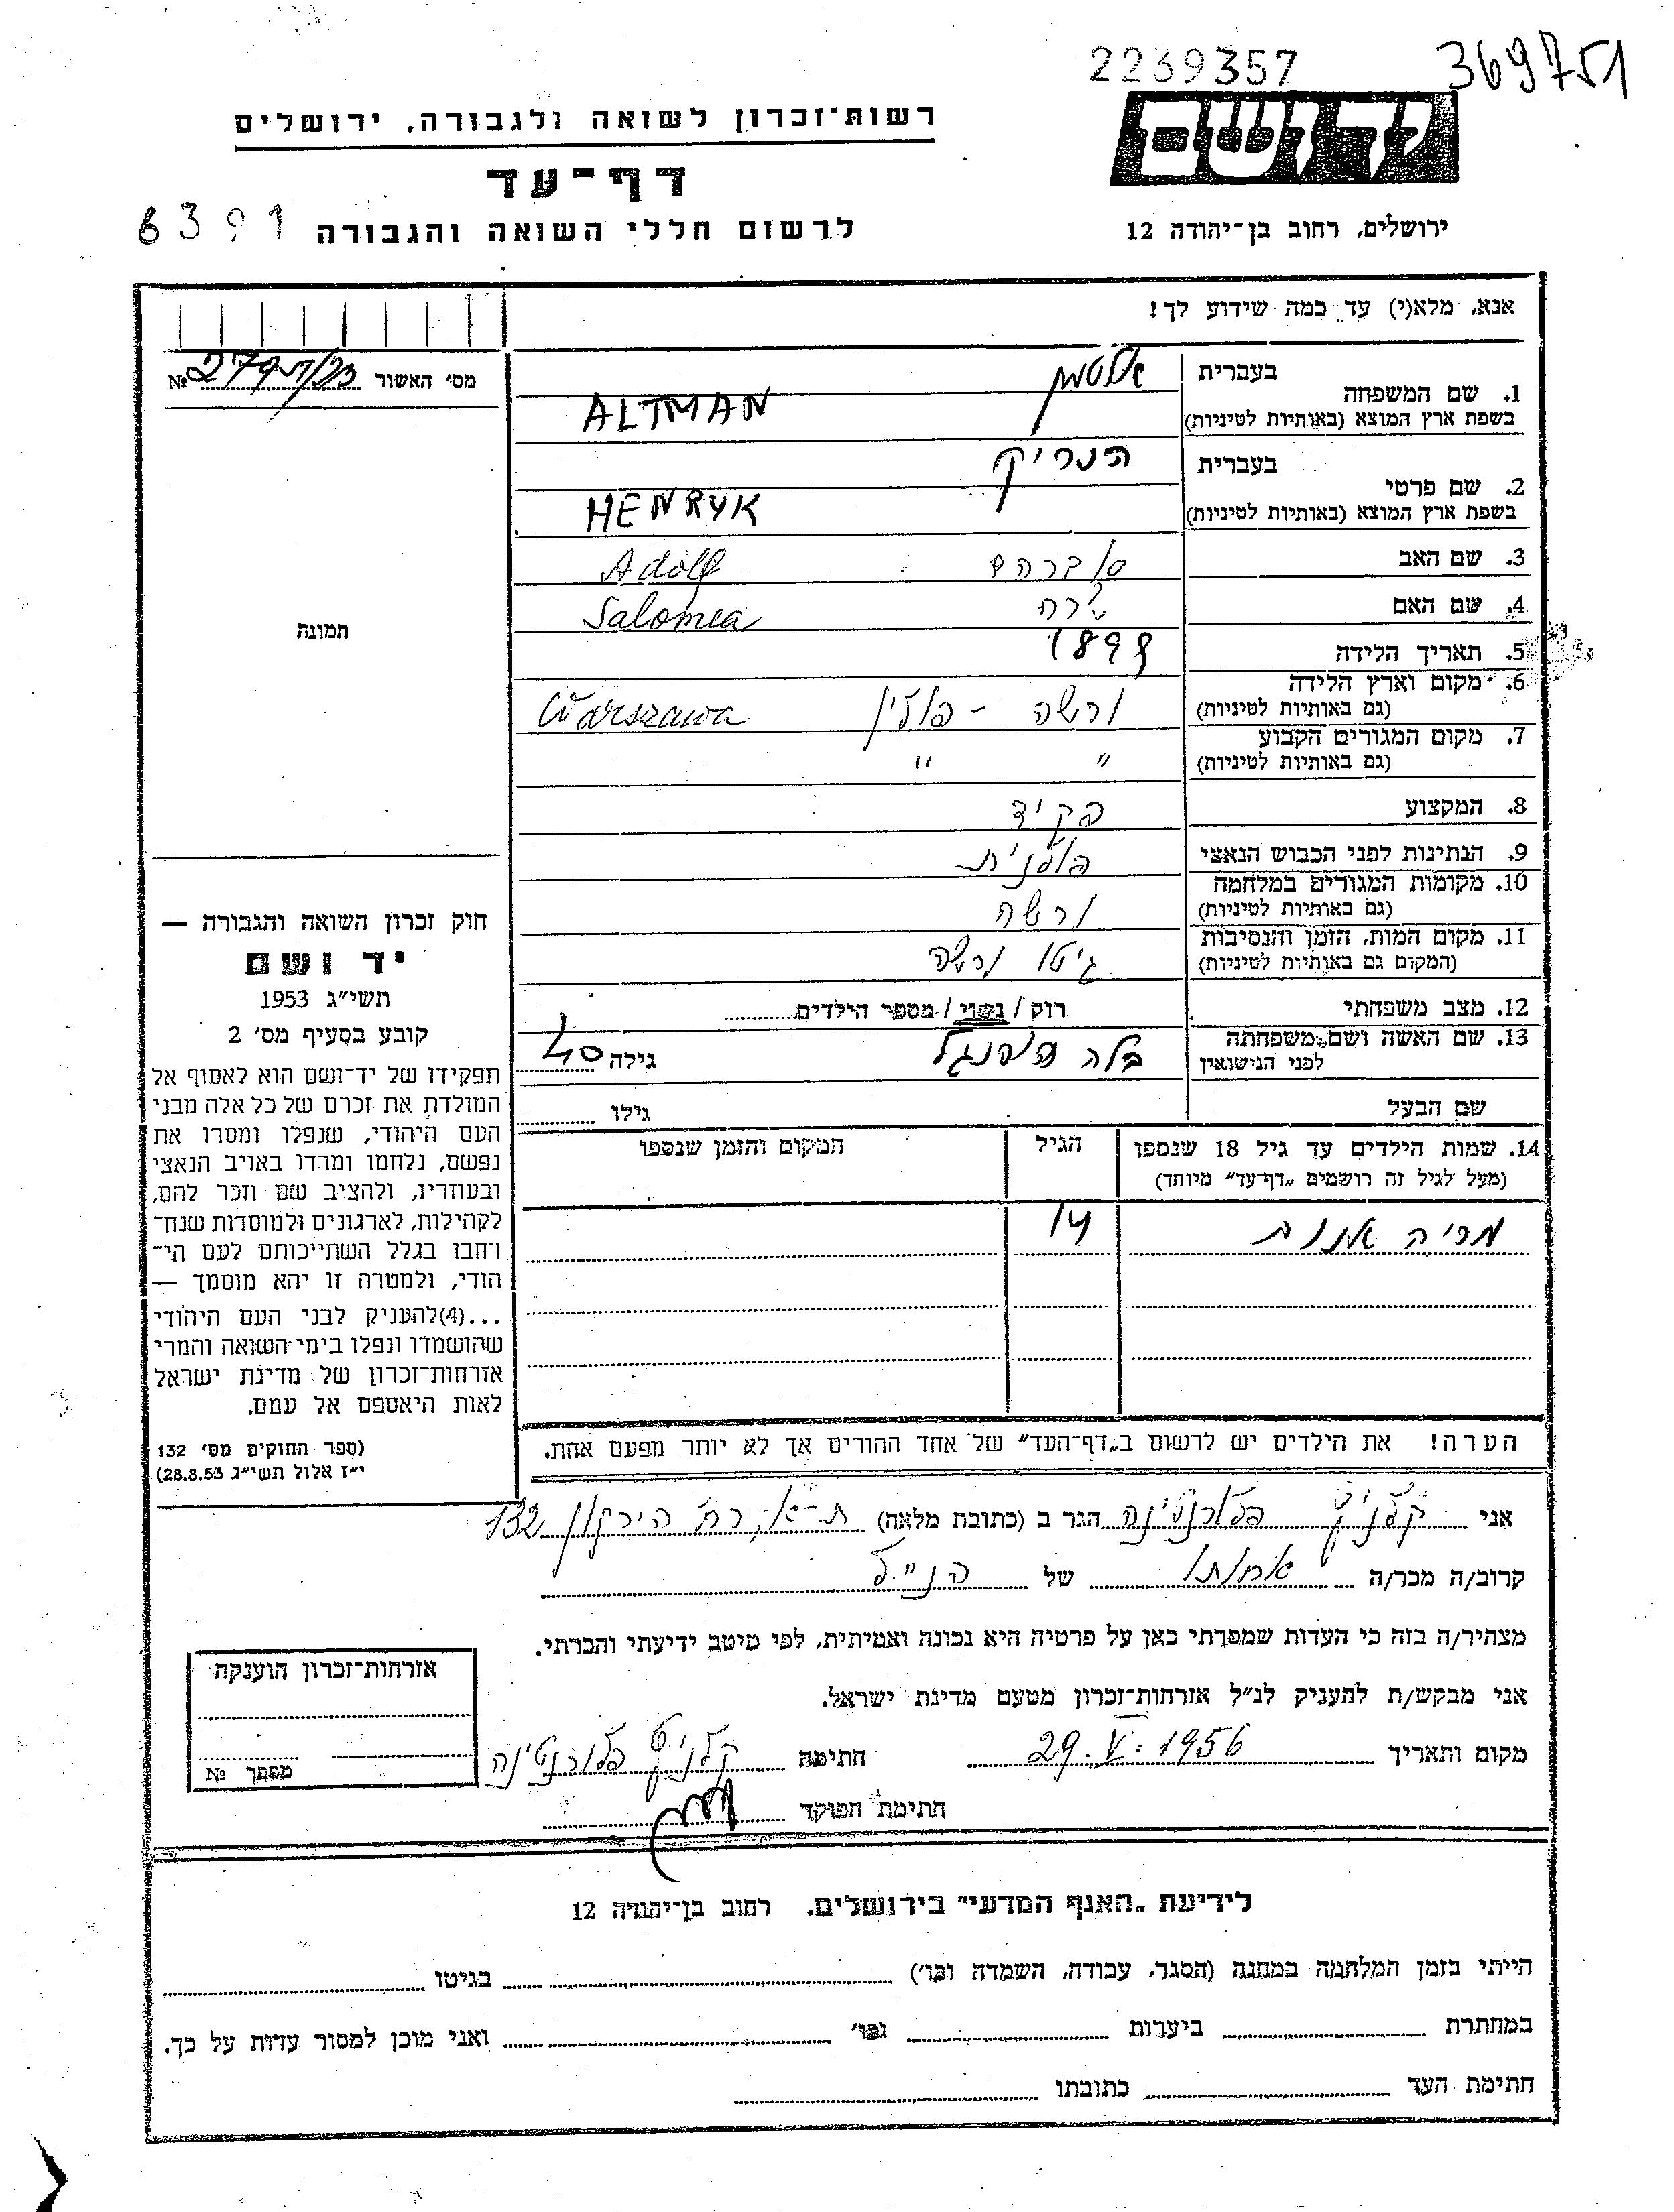 2239357
369751
יד ושם
רשות־זכרון לשואה ולגבורה, ירושלים
דף־עד
לרשום חללי השואה והגבורה
6391
ירושלים, רחוב בן־יהודה 12
אנא, מלא(י) עד כמה שידוע לך!
מס׳ האשור № 279
1. שם המשפחה
בעברית אלטמן
בשפת ארץ המוצא (באותיות לטיניות) ALTMAN
2. שם פרטי
בעברית הנריק
בשפת ארץ המוצא (באותיות לטיניות) HENRYK
3. שם האב אברהם Adolf
4. שם האם שרה Salomea
5. תאריך הלידה 1899
6. מקום וארץ הלידה (גם באותיות לטיניות) ורשה - פולין Warszawa
7. מקום המגורים הקבוע (גם באותיות לטיניות) " "
8. המקצוע פקיד
9. הנתינות לפני הכבוש הנאצי פולנית
10. מקומות המגורים במלחמה (גם באותיות לטיניות) ורשה
11. מקום המות, הזמן והנסיבות (המקום גם באותיות לטיניות) גיטו ורשה
12. מצב משפחתי רוק / נשוי / מספר הילדים
13. שם האשה ושם משפחתה לפני הנישואין בלה גילה 40
שם הבעל גילו
14. שמות הילדים עד גיל 18 שנספו
(מעל לגיל זה רושמים „דף־עד״ מיוחד)
הגיל
המקום והזמן שנספו
מריה אנות 14
הערה! את הילדים יש לרשום ב„דף־העד״ של אחד ההורים אך לא יותר מפעם אחת.
תמונה
חוק זכרון השואה והגבורה —
יד ושם
תשי״ג 1953
קובע בסעיף מס׳ 2
תפקידו של יד־ושם הוא לאסוף אל
המולדת את זכרם של כל אלה מבני
העם היהודי, שנפלו ומסרו את
נפשם, נלחמו ומרדו באויב הנאצי
ובעוזריו, ולהציב שם וזכר להם,
לקהילות, לארגונים ולמוסדות שנח־
רחבו בגלל השתייכותם לעם הי־
הודי, ולמטרה זו יהא מוסמך —
...(4)להעניק לבני העם היהודי
שהושמדו ונפלו בימי השואה והמרי
אזרחות־זכרון של מדינת ישראל
לאות היאספם אל עמם.
(ספר החוקים מס׳ 132
י״ז אלול תשי״ג 28.8.53)
אני קלניק פלורנטינה הגר ב (כתובת מלאה) ת-א, הירקון 132
קרוב/ה מכר/ה אחותו של הנ״ל
מצהיר/ה בזה כי העדות שמסרתי כאן על פרטיה היא נכונה ואמיתית, לפי מיטב ידיעתי והכרתי.
אני מבקש/ת להעניק לנ״ל אזרחות־זכרון מטעם מדינת ישראל.
מקום ותאריך 29.V.1956 חתימה קלניק פלורנטינה
חתימת הפוקד
אזרחות־זכרון הוענקה
מסמך №
לידיעת „האגף המדעי״ בירושלים, רחוב בן־יהודה 12
הייתי בזמן המלחמה במחנה (הסגר, עבודה, השמדה וכו׳) בגיטו
במחתרת ביערות וכו׳ ואני מוכן למסור עדות על כך.
חתימת העד כתובתו